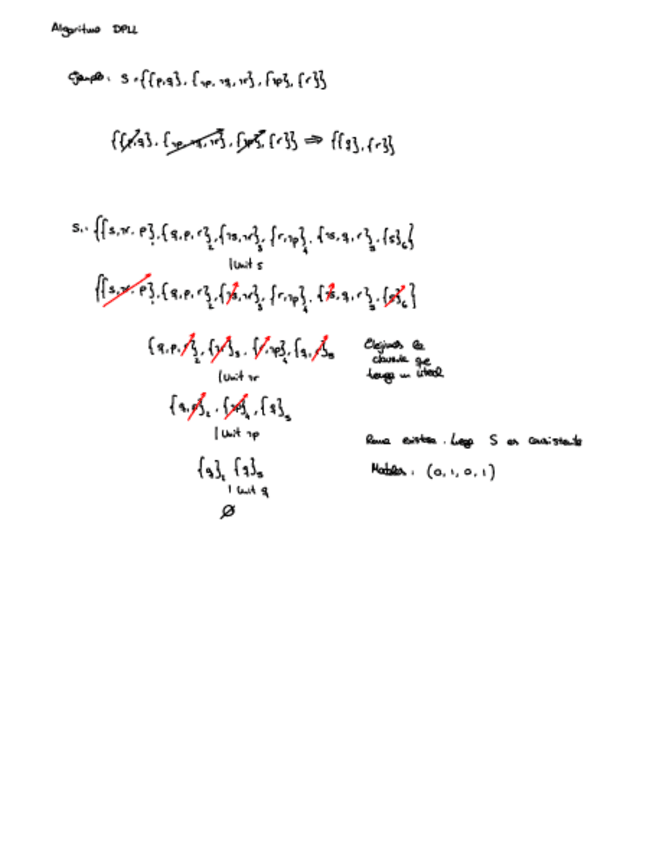 Algoritmo DPLL
Ejemplo: S = {{p,q}, {¬p, ¬q, ¬r}, {¬p}, {r}}
{{p,q}, {¬p, ¬q, ¬r}, {¬p}, {r}} ⇒ {{q}, {r}}
S₁: {{s,¬r, p}₁, {q,p,r}₂, {¬s,¬r}₃, {r,¬p}₄, {¬s,q,r}₅, {s}₆}
| Unit s
{{s,¬r, p}₁, {q,p,r}₂, {¬s,¬r}₃, {r,¬p}₄, {¬s,q,r}₅, {s}₆}
{q,p,r}₂, {¬r}₃, {r,¬p}₄, {q,r}₅
Elegimos la
clausula que
tenga un literal
| Unit ¬r
{q,p}₂, {¬p}₄, {q}₅
| Unit ¬p
Rama exitosa. Luego S es consistente
{q}₂ {q}₅
Modelos: (0,1,0,1)
| Unit q
∅